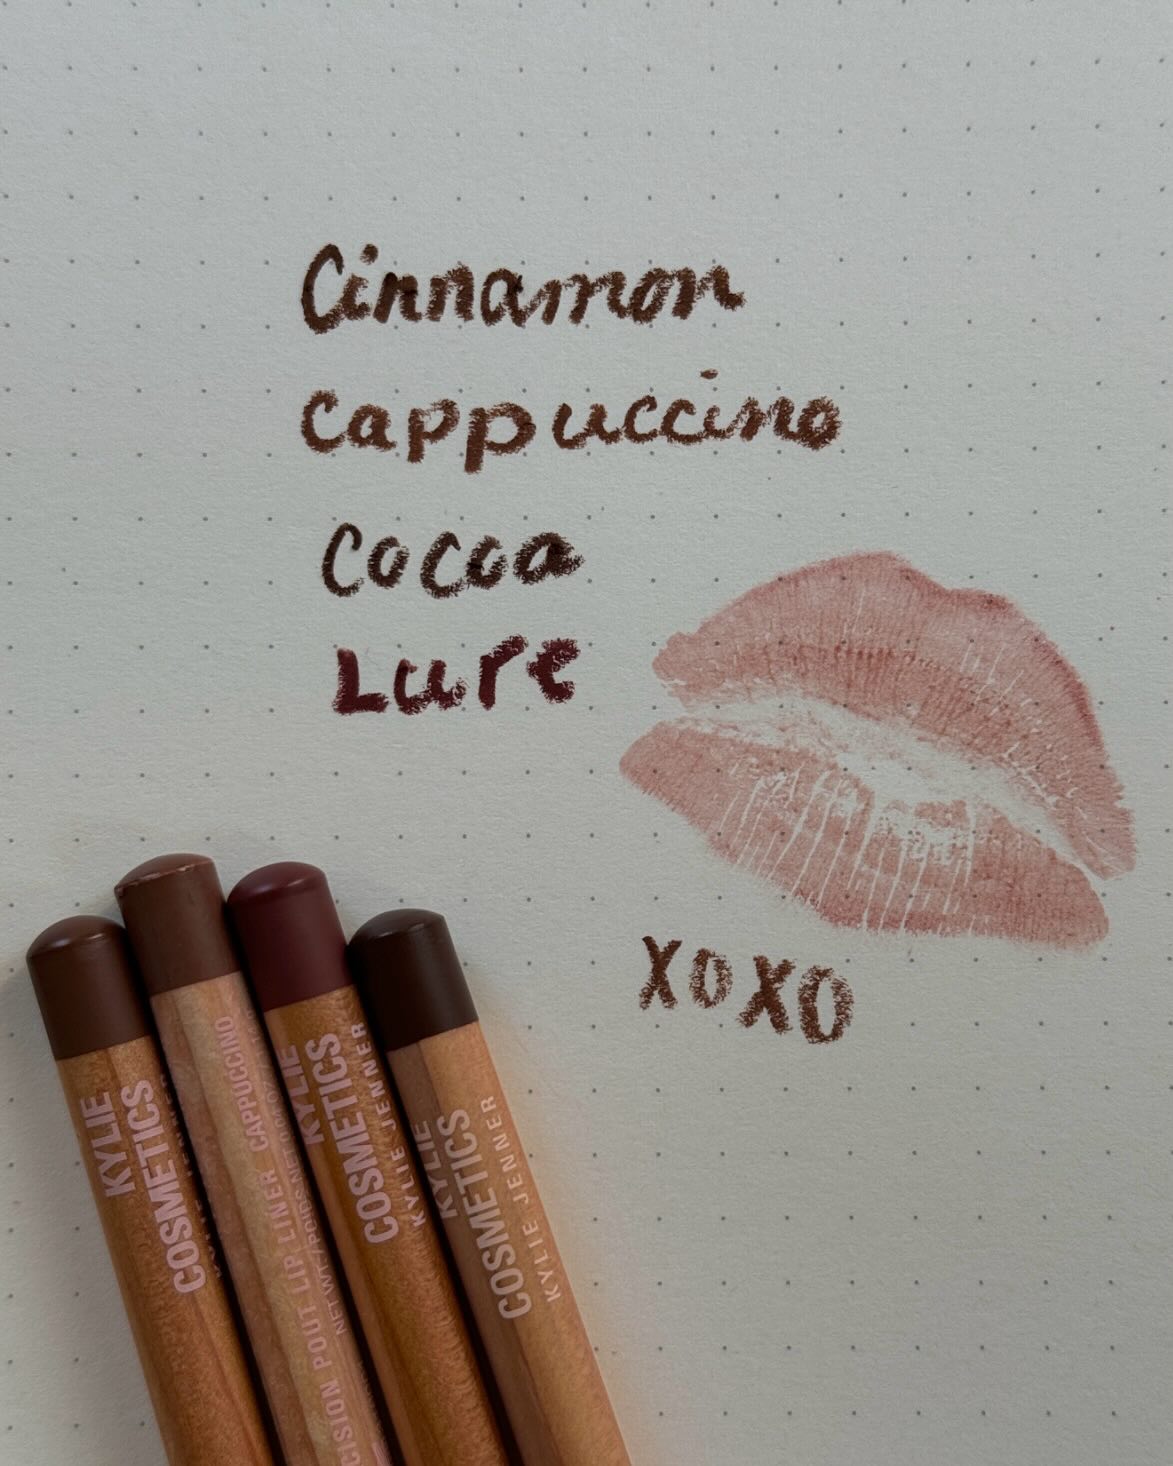 Cinnamon
Cappuccino
Cocoa
Lure
XOXO
KYLIE
COSMETICS
PRECISION POUT LIP LINER CAPPUCCINO
KYLIE
COSMETICS
KYLIE JENNER
KYLIE
COSMETICS
KYLIE JENNER